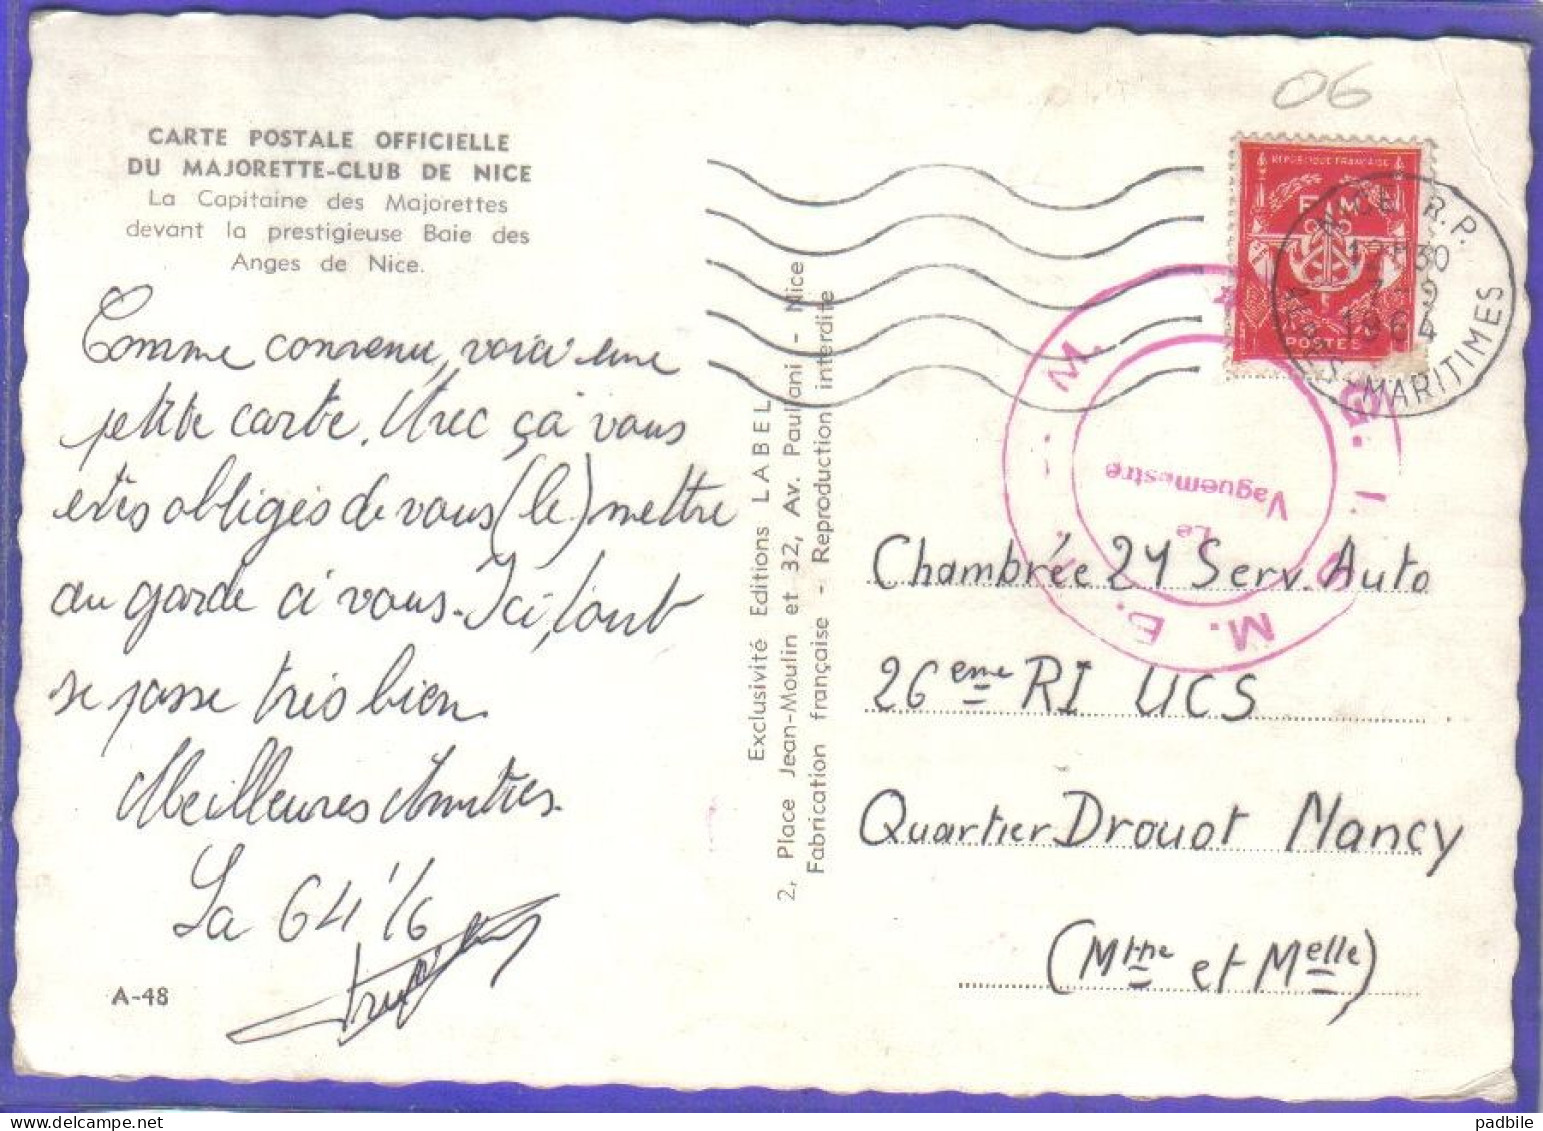 06
CARTE POSTALE OFFICIELLE
DU MAJORETTE-CLUB DE NICE
La Capitaine des Majorettes
devant la prestigieuse Baie des
Anges de Nice.
Comme convenu, voici une
petite carte. Avec ça vous
etes obligés de vous (le) mettre
au garde à vous. Ici, tout
se passe très bien.
Meilleures Amitiés.
La 64 1/6
A-48
Exclusivité Editions LABEL
2, Place Jean-Moulin et 32, Av. Pauliani - Nice
Fabrication française - Reproduction interdite
REPUBLIQUE FRANCAISE
F.M
POSTES
NICE R.P.
12H30
7-9
1964
MARITIMES
Le
Vaguemestre
Chambrée 24 Serv. Auto
26eme RI UCS
Quartier Drouot Nancy
(Mme et Melle)
padbile